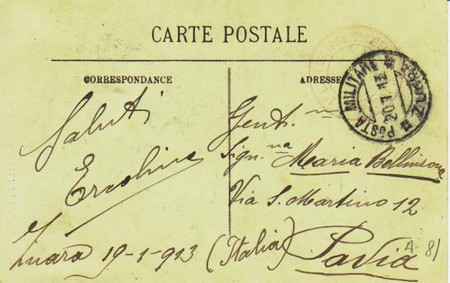 CARTE POSTALE
CORRESPONDANCE
ADRESSE
POSTA MILITARE ZUARA
20.1.13
Saluti
Ercolina
Zuara 19-1-913
Gent.ma
Sign.na Maria Bellinsona
Via S. Martino 12
(Italia) Pavia
81